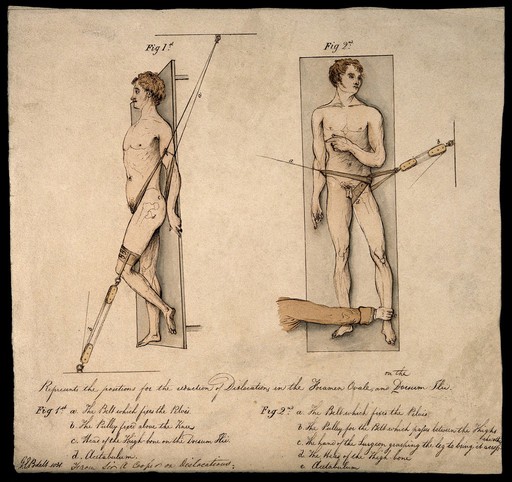 Fig 1st
Fig 2d
a
a
b
on the
Represents the positions for the reduction of Dislocation, in the Foramen Ovale, and Dorsum Ilii.
Fig 1st a. The Belt which fixes the Pelvis.
b. The Pulley fixed above the Knee
c. Head of the Thigh bone on the Dorsum Ilii.
d. Acetabulum.
From Sir A Cooper on Dislocations.
Fig 2d a. The Belt which fixes the Pelvis
b. The Pulley for the Belt which passes between the Thighs
c. The hand of the Surgeon grasping the leg to bring it across
d. The Head of the Thigh bone
e. Acetabulum